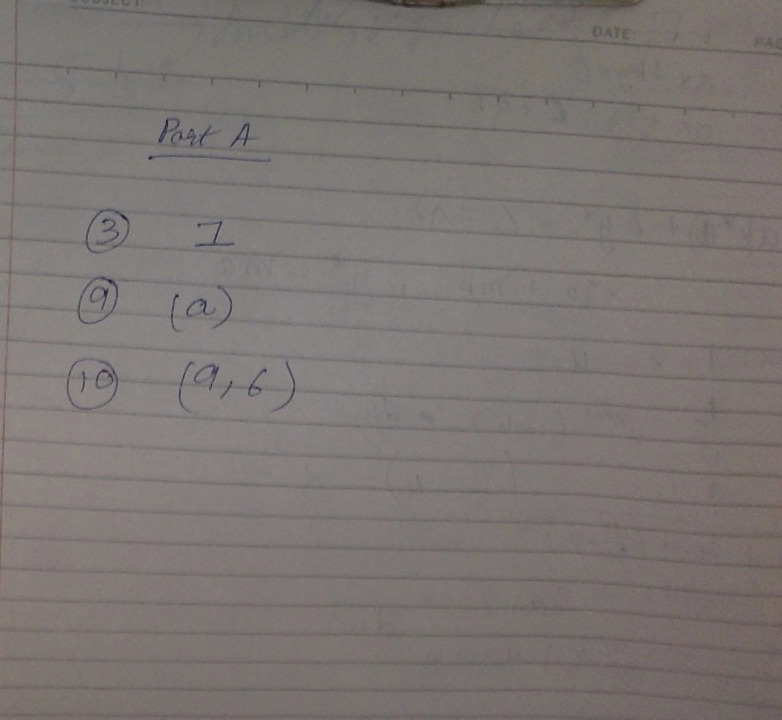 SUBJECT
DATE
Part A
③ 1
⑨ (a)
⑩ (9,6)